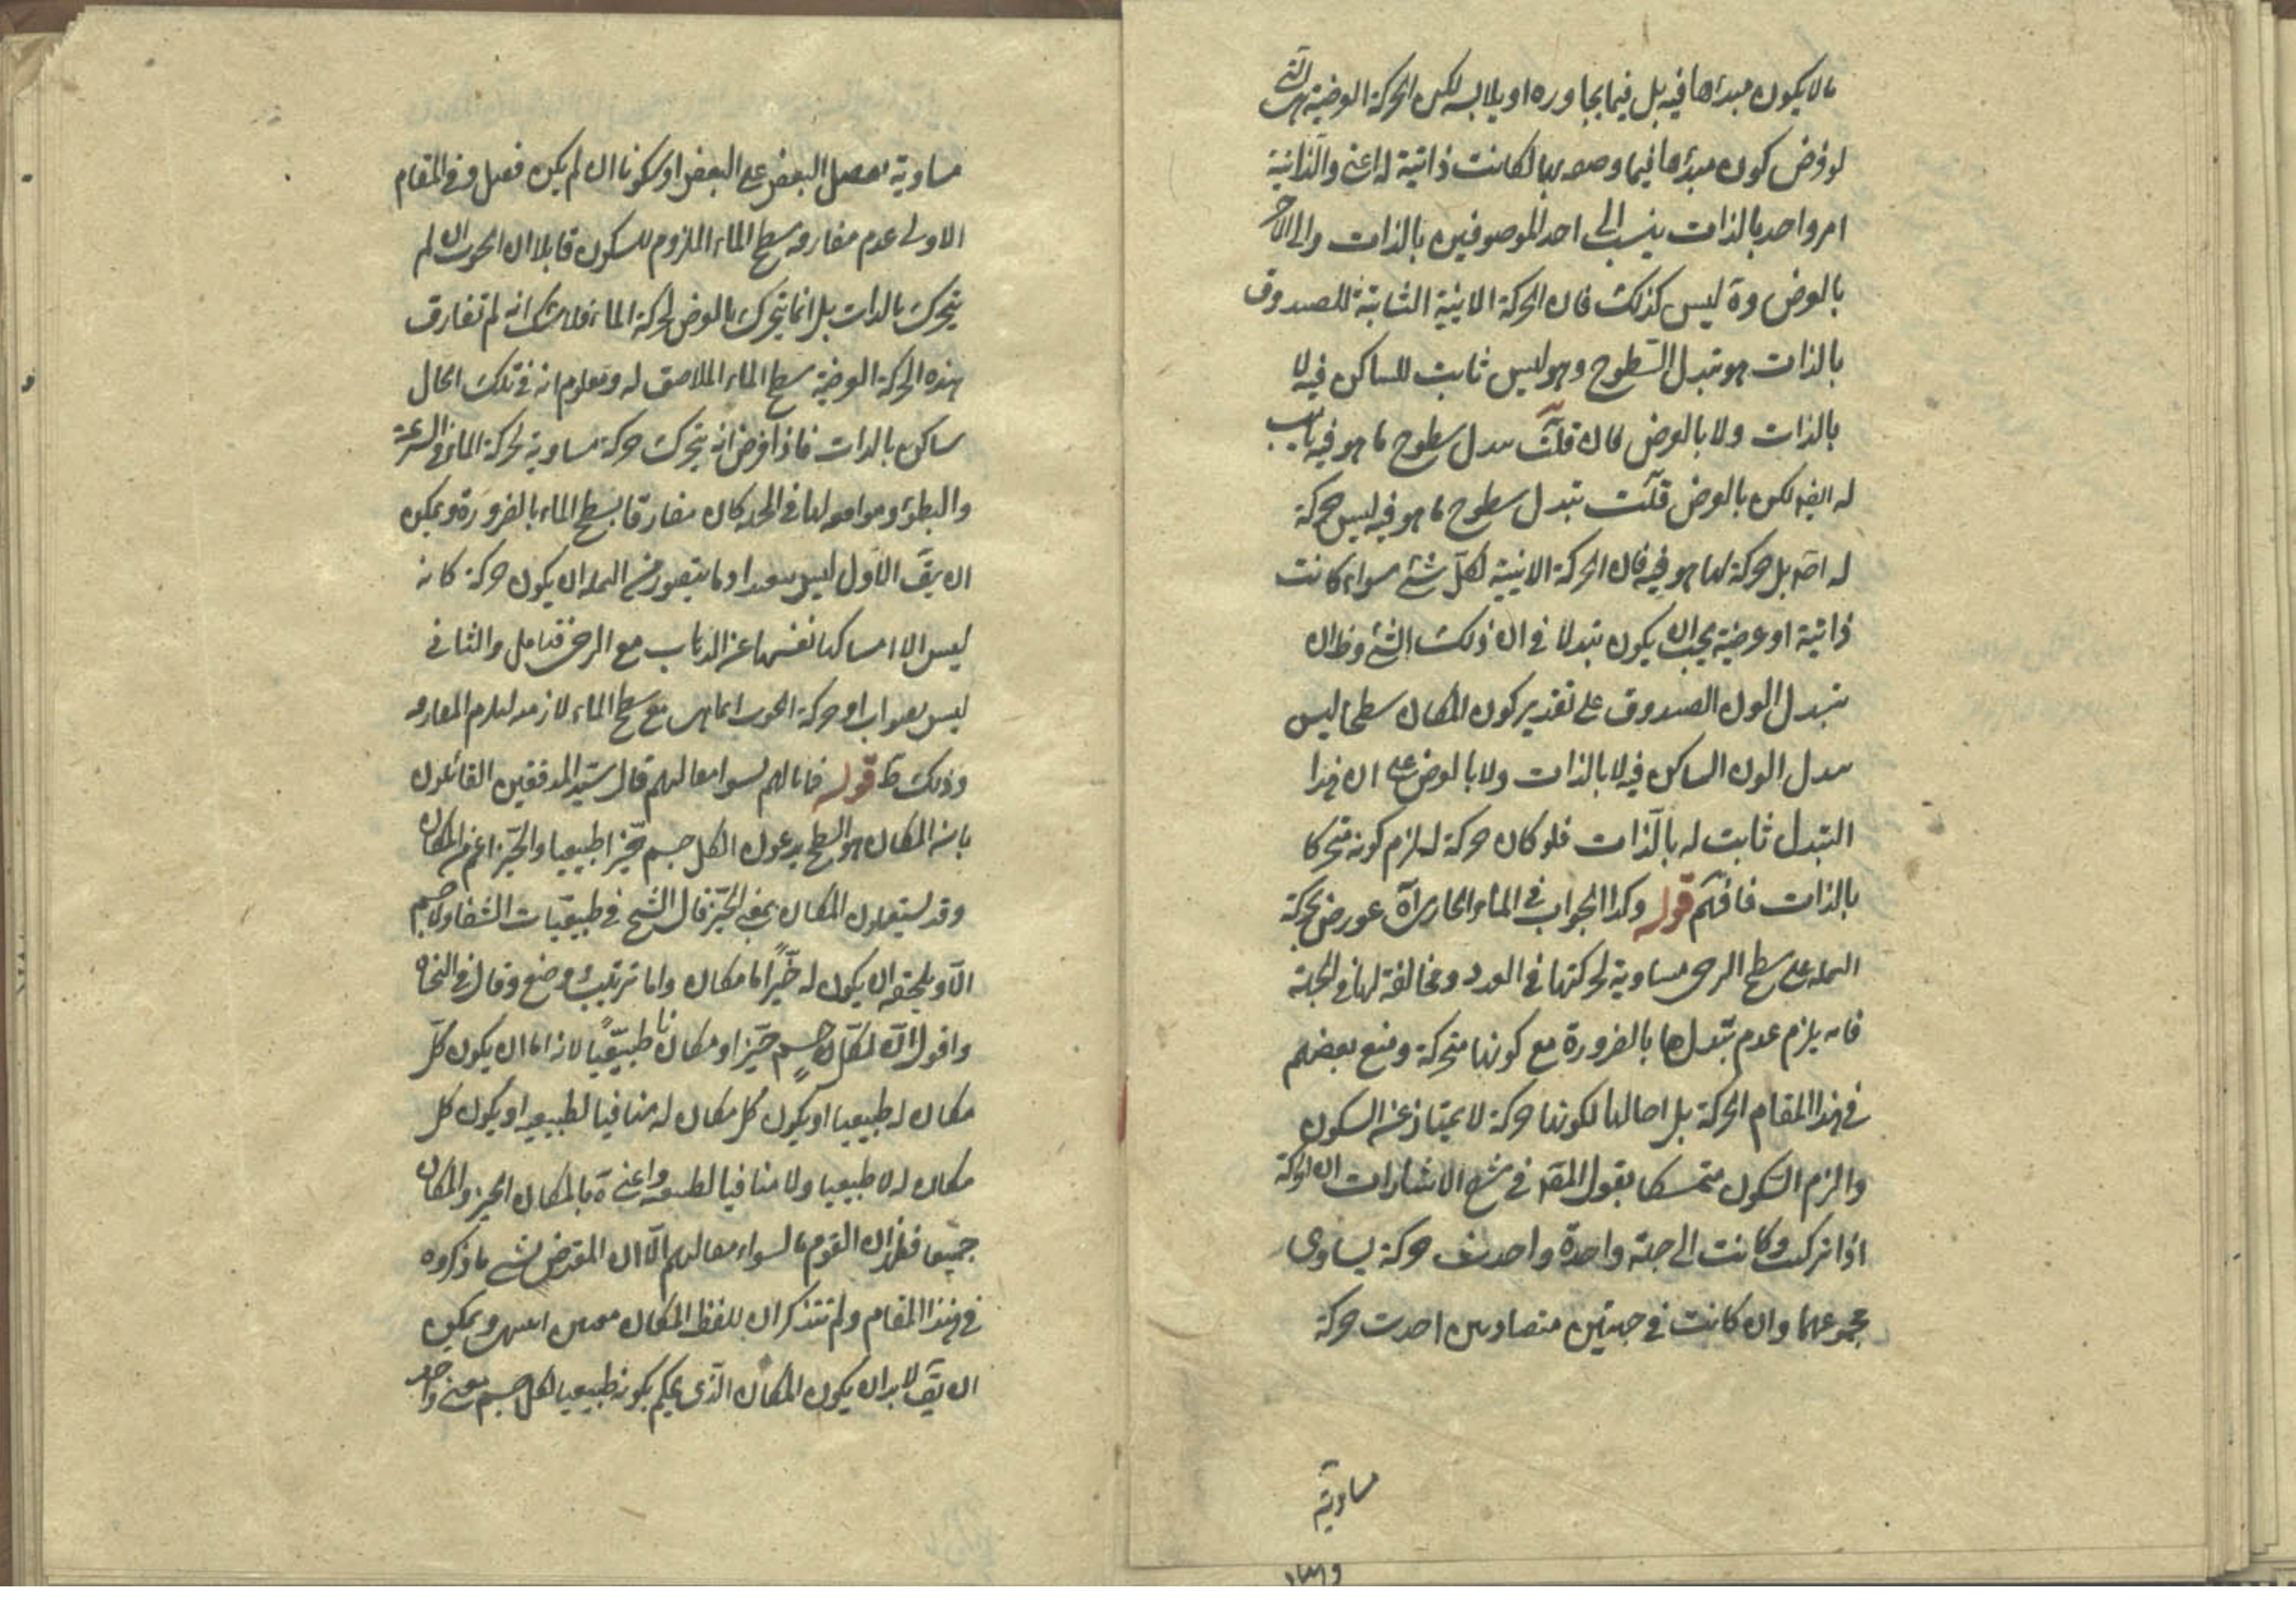 ما لا يكون مبدأها فيه بل فيما يجاوره او يلابسه لكن الحركة العرضية هى التى
لو فرض كون مبدؤها فيما وصف بها لكانت ذاتية له اعنى والذاتية
امر واحد بالذات ينسب الى احد الموصوفين بالذات والى الاخر
بالعرض وة ليس كذلك فان الحركة الاينية الثابتة للصندوق
بالذات هو تبدل السطوح وهو ليس ثابت للساكن فيه لا
بالذات ولا بالعرض فان قلت تبدل سطوح ما هو فيه ثابت
له ايضا لكن بالعرض قلت تبدل سطوح ما هو فيه ليس حركة
له اصَ بل حركة لما هو فيه فان الحركة الاينية لكل شئ سواء كانت
ذاتية او عرضية يجب ان يكون تبدلا فى اين ذلك الشئ وظ ان
تبدل اين الصندوق على تقدير كون المكان سطحا ليس
تبدل اين الساكن فيه لا بالذات ولا بالعرض على ان هذا
التبدل ثابت له بالذات فلو كان حركة له لزم كونه متحركا
بالذات فافهم قوله وكذا الجواب فى الماء الجارى آه عورض بحركة
النملة على سطح الرحى مساوية لحركتها فى القدر ومخالفة لها فى الجهة
فانه يلزم عدم تبدلها بالضرورة مع كونها متحركة ومنع بعضهم
فى هذا المقام الحركة بل احالها لكونها حركة لا يمتاز عن السكون
والزم السكون متمسكا بقول المصَ فى شرح الاشارات ان الحركة
اذا تركبت وكانت الى جهة واحدة واحدثت حركة يساوى
مجموعهما وان كانت فى جهتين متضادتين احدثت حركة
مساوية
مساوية لفضل البعض على البعض او سكونا ان لم يكن فضل وفى المقام
الاولى عدم مفارقة سطح الماء الملزوم للسكون قايلا ان الحوت ان لم
يتحرك بالذات بل انما يتحرك بالعرض لحركة الماء فلا شك انه لم تفارق
بهذه الحركة العرضية سطح الماء الملاصق له ومعلوم انه فى تلك الحال
ساكن بالذات فاذا فرض انه يتحرك حركة مساوية لحركة الماء فى السرعة
والبطؤ وموافقة لها فى الجهة كان مفارقا لسطح الماء بالضرورة ويمكن
ان يقَ الاول ليس بعيدا وما يتصور من النملة ان يكون حركة كانه
ليس الا امساكها نفسها عن الذهاب مع الرحى فتامل والثانى
ليس بصواب اذ حركة الحوت انما هى مع سطح الماء لازمة لعدم المفارقة
وذلك ظ قوله فما بالهم نسوا مقالتهم قال سيد المدققين القائلون
بان المكان هو السطح يدعون ان لكل جسم حيزا طبيعيا والحيز اعم من المكان
وقد يستعملون المكان بمعنى الحيز قال الشيخ فى طبيعيات الشفا ولا جسم
الا ويلحقه ان يكون له حيز اما مكان واما ترتيب وضع وقال فى النجاة
واقول ان لكل جسم حيزا ومكانا طبيعيا لانه اما ان يكون كل
مكان له طبيعيا او يكون كل مكان له منافيا لطبيعة او يكون كل
مكان له لا طبيعيا ولا منافيا لطبيعة واعنى ة بالمكان الحيز والمكان
جميعا فظهر ان القوم ما نسوا مقالتهم الا ان المعترض نسى ما ذكروه
فى هذا المقام ولم تتذكر ان للفظ المكان معنيين ويمكن
ان يقَ لابد ان يكون المكان الذى يحكم بكونه طبيعيا لكل جسم معنى واحد